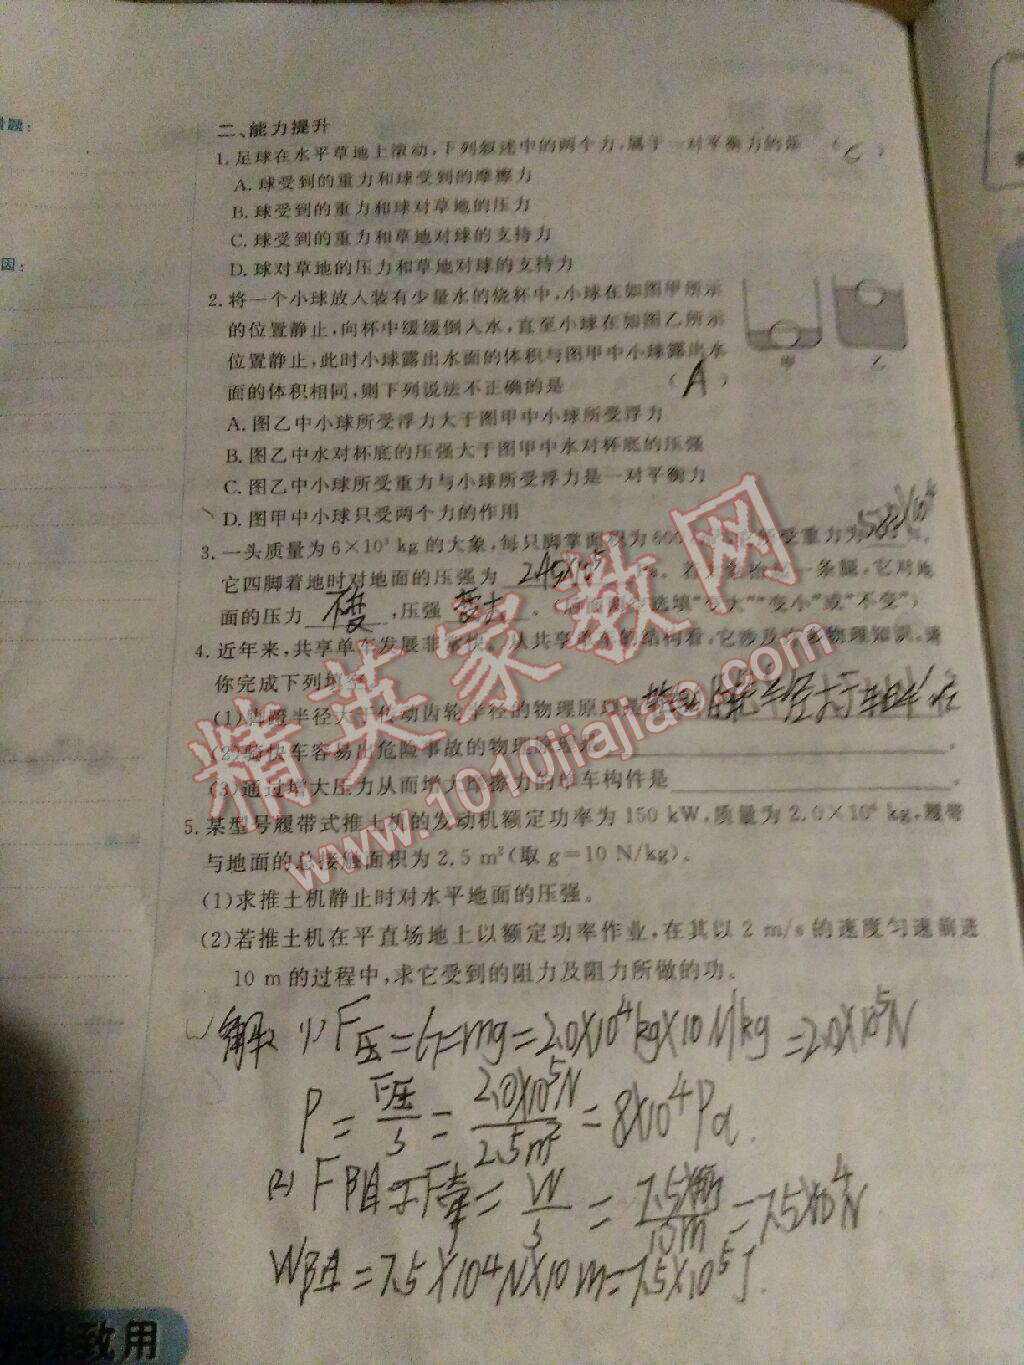 二、能力提升
1. 足球在水平草地上滚动,下列叙述中的两个力,属于一对平衡力的是 (C)
A. 球受到的重力和球受到的摩擦力
B. 球受到的重力和球对草地的压力
C. 球受到的重力和草地对球的支持力
D. 球对草地的压力和草地对球的支持力
2. 将一个小球放入装有少量水的烧杯中,小球在如图甲所示
的位置静止,向杯中缓缓倒入水,直至小球在如图乙所示
位置静止,此时小球露出水面的体积与图甲中小球露出水
面的体积相同,则下列说法不正确的是 (A)
甲 乙
A. 图乙中小球所受浮力大于图甲中小球所受浮力
B. 图乙中水对杯底的压强大于图甲中水对杯底的压强
C. 图乙中小球所受重力与小球所受浮力是一对平衡力
D. 图甲中小球只受两个力的作用
3. 一头质量为6×10³ kg的大象,每只脚掌面积为600 所受重力为
它四脚着地时对地面的压强为 2.45×10⁵ 一条腿,它对地
面的压力 不变 ,压强 变大 。 选填“变大”“变小”或“不变”)
4. 近年来,共享单车发展非常快。从共享单车的结构看,它涉及许多物理知识,请
你完成下列填空。
(1)脚蹬半径大于传动齿轮半径的物理原因是
(2)骑快车容易出危险事故的物理原因是 。
(3)通过增大压力从而增大摩擦力的单车构件是 。
5. 某型号履带式推土机的发动机额定功率为150 kW,质量为2.0×10⁴ kg,履带
与地面的总接触面积为2.5 m²(取g=10 N/kg)。
(1)求推土机静止时对水平地面的压强。
(2)若推土机在平直场地上以额定功率作业,在其以2 m/s的速度匀速前进
10 m的过程中,求它受到的阻力及阻力所做的功。
解 (1) F压=G=mg=2.0×10⁴kg×10N/kg=2.0×10⁵N
P=F压/S=2.0×10⁵N/2.5m²=8×10⁴Pa.
(2) F阻=F牵=W/S= /10m=7.5×10⁴N
W阻=7.5×10⁴N×10m=7.5×10⁵J.
致用
因:
题:
精英家教网
www.1010jiajiao.com